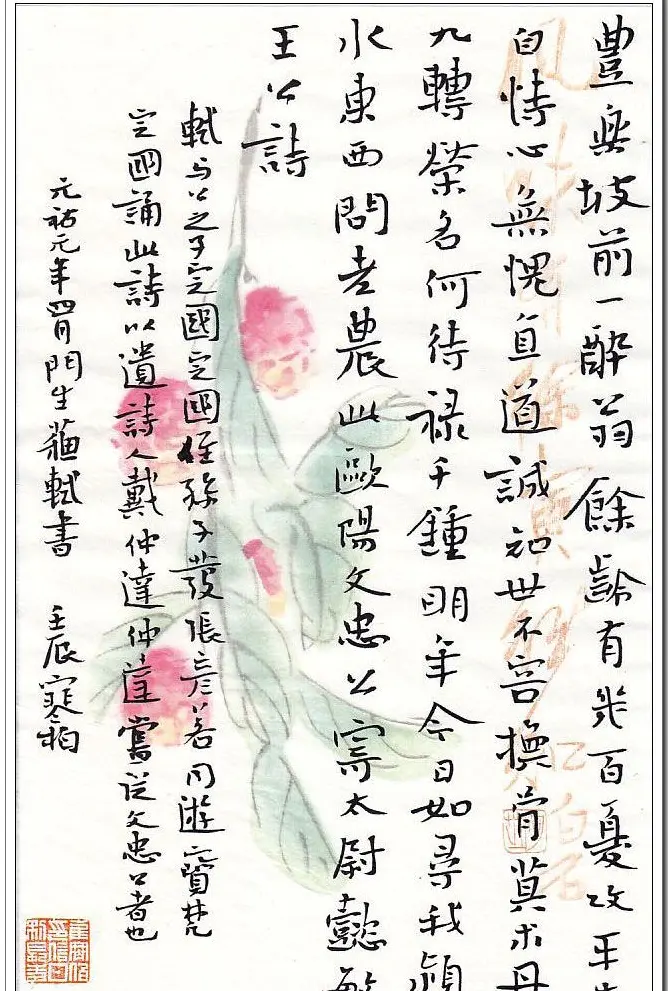 豐樂坡前一醉翁餘齡有幾百憂攻平生
自恃心無愧直道誠知世不容換骨莫求丹
九轉榮名何待祿千鍾明年今日如尋我潁
水東西問老農此歐陽文忠公寄太尉懿敏
王公詩
軾与公之子定國定國侄孫子發張彥若同遊寶梵
定國誦此詩以遺詩人戴仲達仲達嘗從文忠公者也
元祐元年四月門生蘇軾書 壬辰寒柏